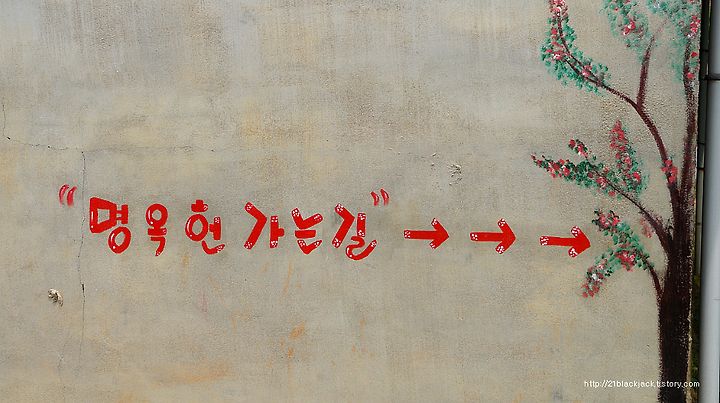 "명옥헌 가는길" → → →
http://21blackjack.tistory.com